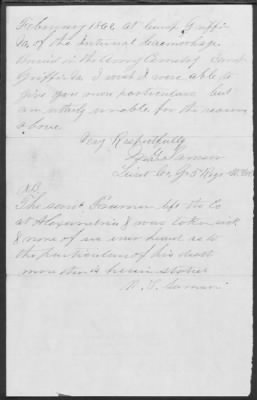 February 1862 at Camp Griffin
Va. of the Internal haemorhage
buried in the Army Cemetry Camp
Griffin Va. I wish I were able to
give you more particulars but
am utterly unable for the reason
above.
Very Respectfully
Lieut Co. G. 5 Regt
N.B.
The said left the Co
at Alexandria & was taken sick
& none of us ever heard as to
the particulars of his death
more than is herein stated